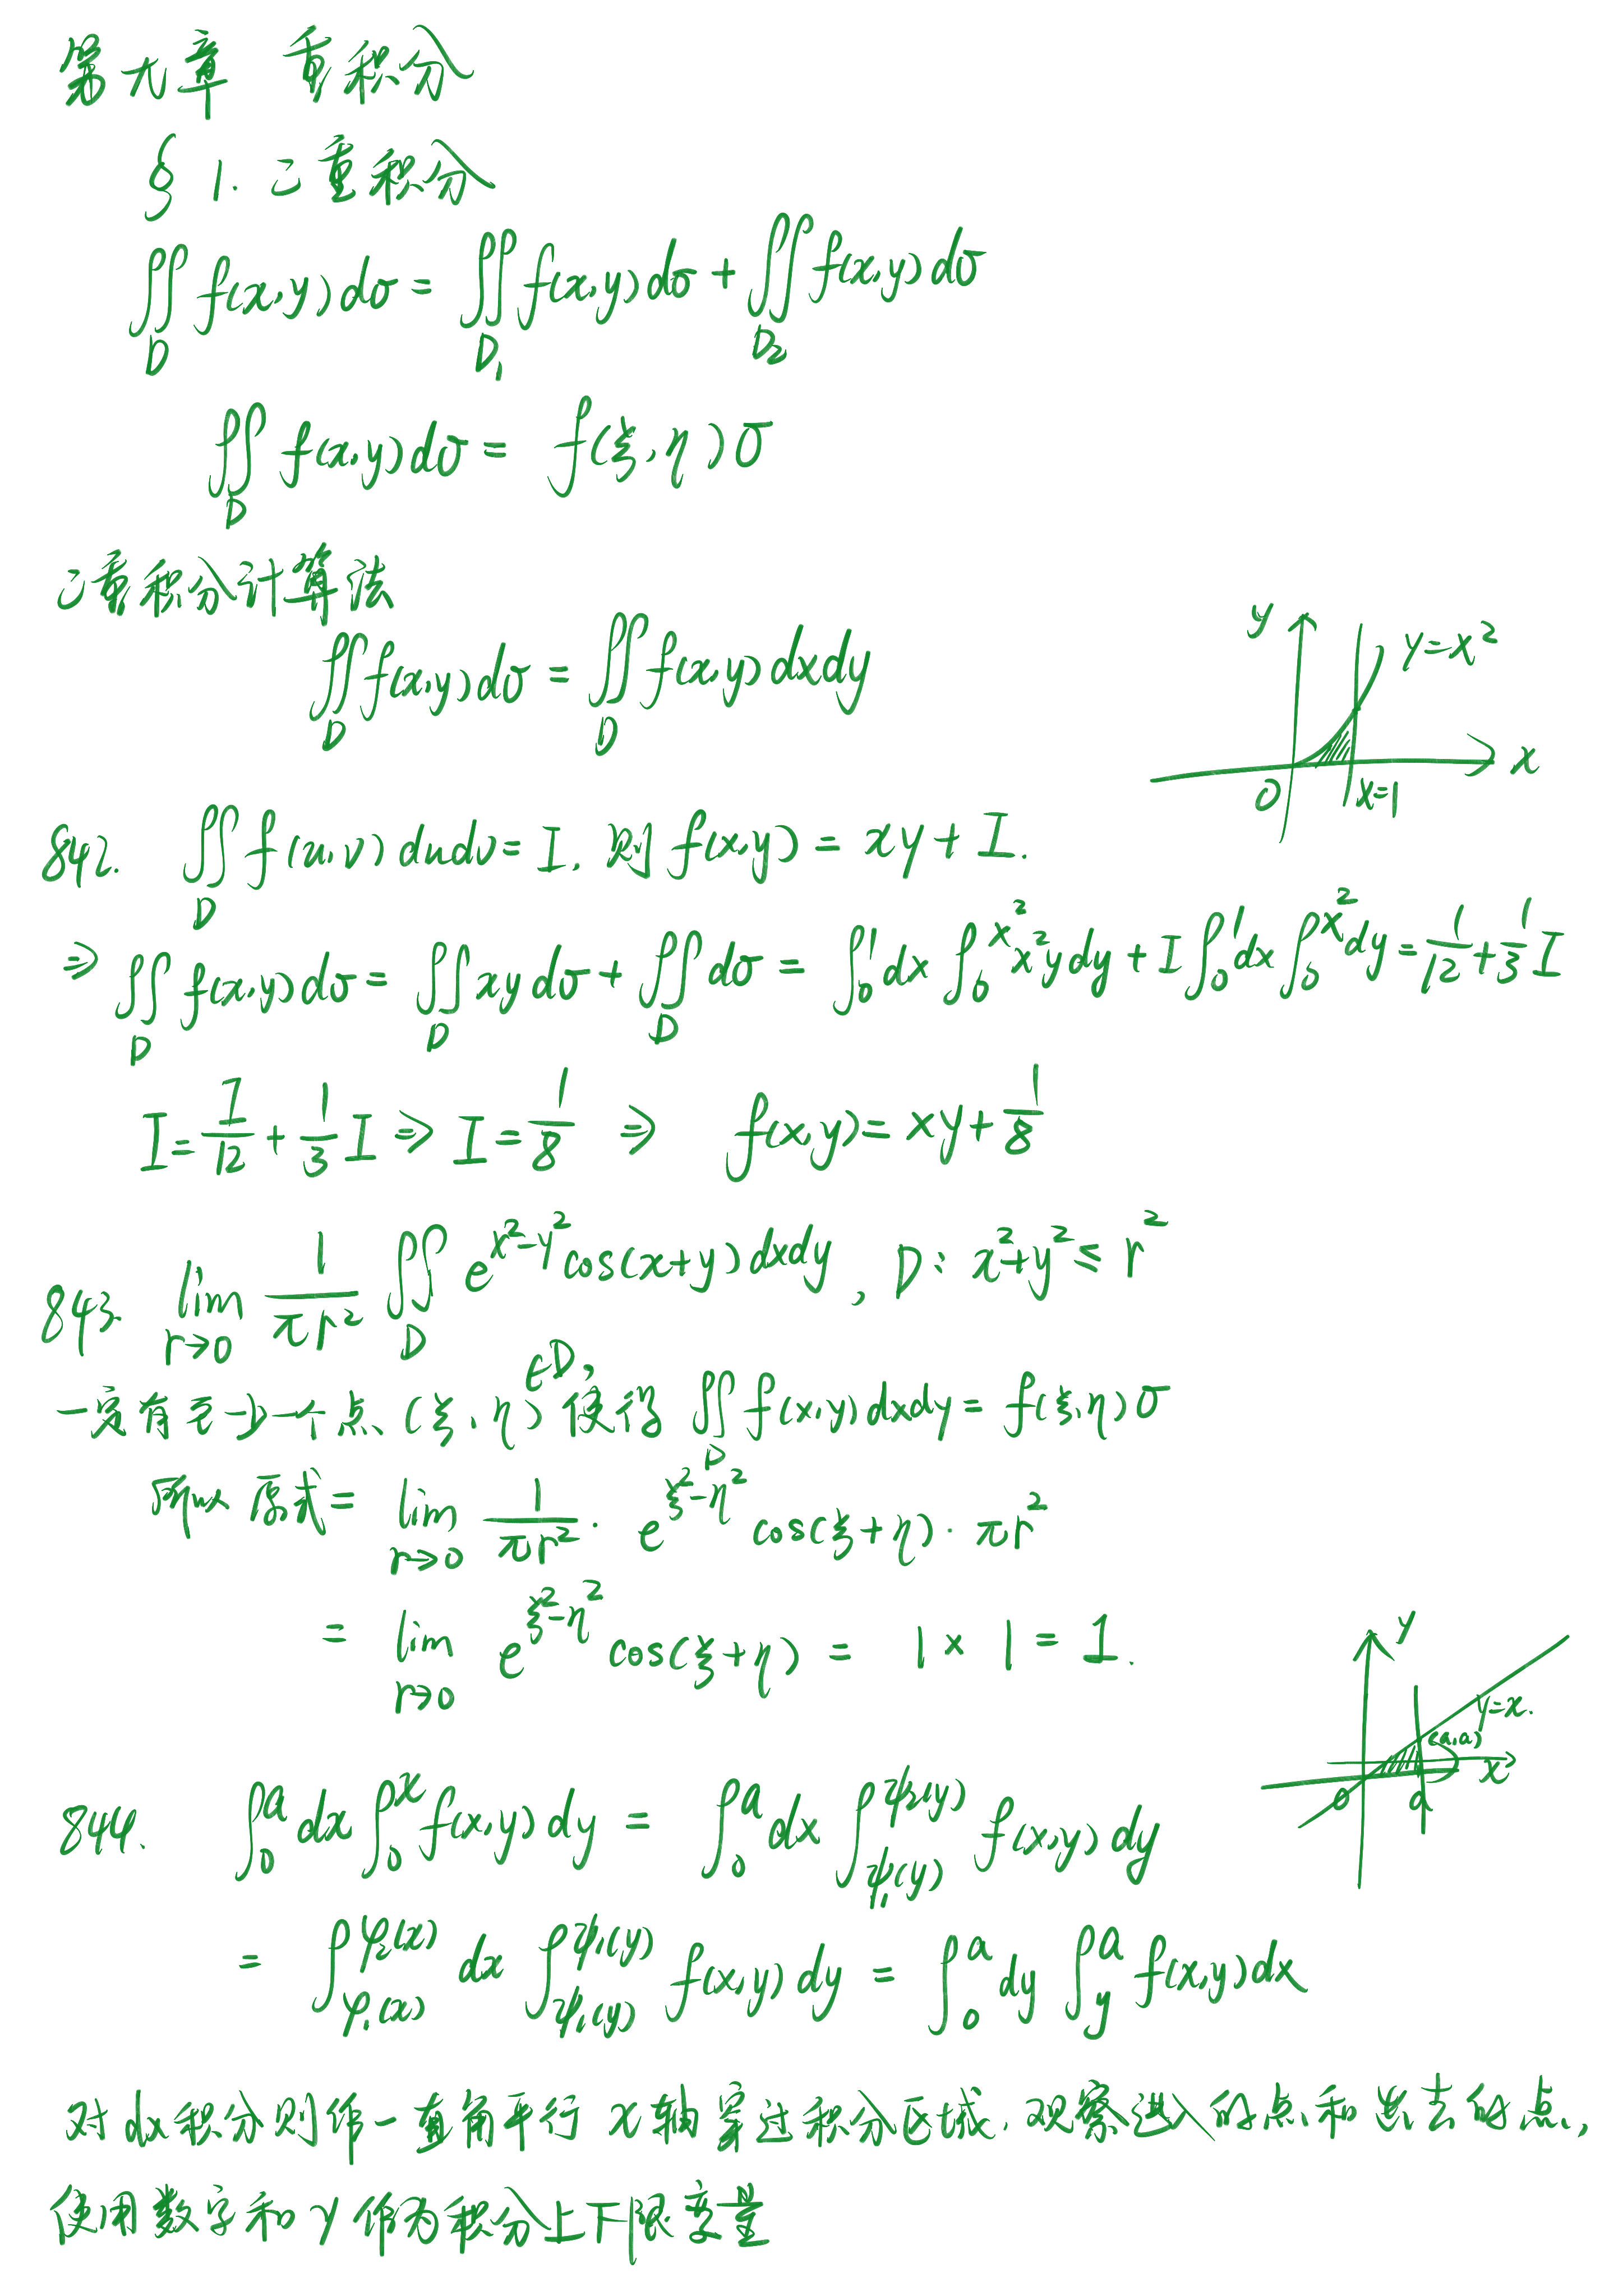 第九章 重积分
§1. 二重积分
∬_D f(x,y)dσ = ∬_{D₁} f(x,y)dσ + ∬_{D₂} f(x,y)dσ
∬_D f(x,y)dσ = f(ξ,η)σ
二重积分计算法
∬_D f(x,y)dσ = ∬_D f(x,y)dxdy
y
y=x²
x
0
x=1
842. ∬_D f(u,v)dudv = I. 则 f(x,y) = xy + I.
⇒ ∬_D f(x,y)dσ = ∬_D xydσ + ∬_D dσ = ∫_0^1 dx ∫_0^{x²} x²ydy + I∫_0^1 dx ∫_0^{x²} dy = 1/12 + 1/3 I
I = 1/12 + 1/3 I ⇒ I = 1/8 ⇒ f(x,y) = xy + 1/8
843. lim_{r→0} 1/(πr²) ∬_D e^{x²-y²} cos(x+y)dxdy, D: x²+y² ≤ r²
一定有至少一个点(ξ,η)∈D, 使得 ∬_D f(x,y)dxdy = f(ξ,η)σ
所以 原式 = lim_{r→0} 1/(πr²) · e^{ξ²-η²} cos(ξ+η) · πr²
= lim_{r→0} e^{ξ²-η²} cos(ξ+η) = 1×1 = 1.
y
y=x.
(a,a)
x
0
a
844. ∫_0^a dx ∫_0^x f(x,y)dy = ∫_0^a dx ∫_{ψ₁(y)}^{ψ₂(y)} f(x,y)dy
= ∫_{φ₁(x)}^{φ₂(x)} dx ∫_{ψ₁(y)}^{ψ₁(y)} f(x,y)dy = ∫_0^a dy ∫_y^a f(x,y)dx
对dx积分则作一直角平行x轴穿过积分区域,观察进入的点和出去的点,
使用数字和y作为积分上下限变量